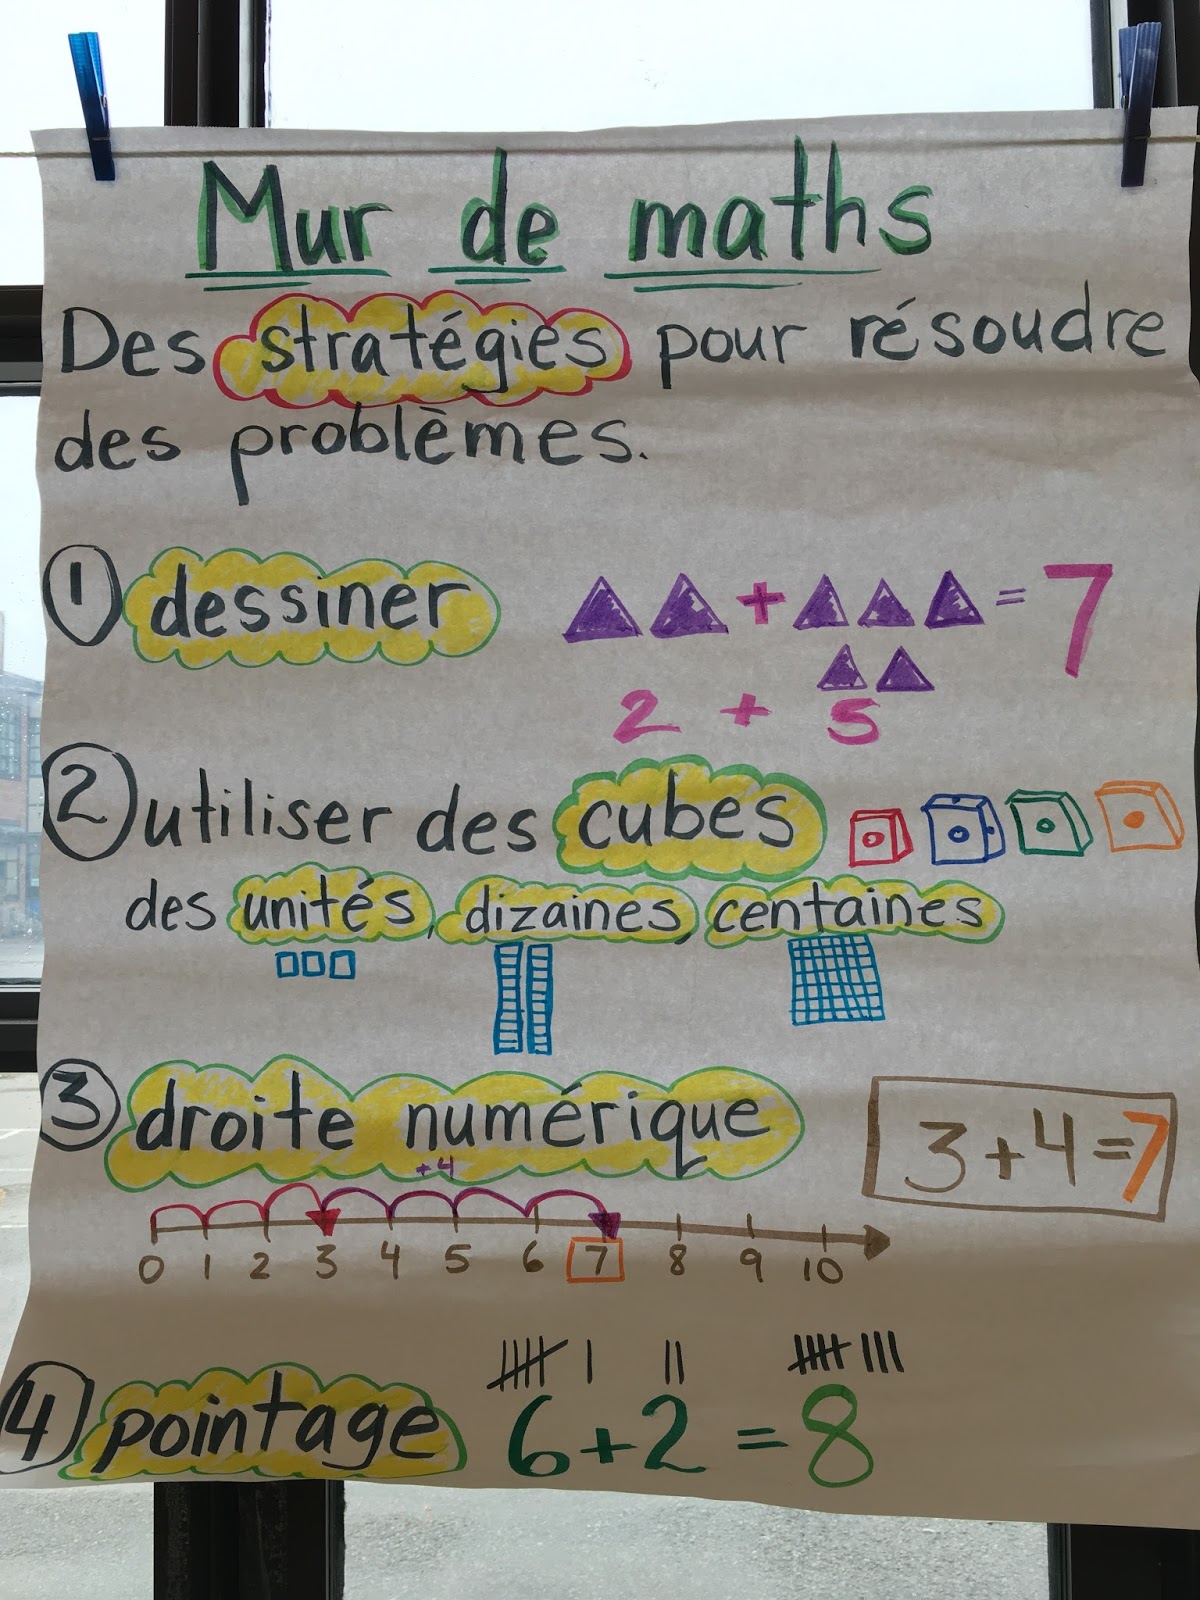 Mur de maths
Des stratégies pour résoudre
des problèmes.
1 dessiner + = 7
2 + 5
2 utiliser des cubes
des unités, dizaines, centaines
3 droite numérique
3+4=7
+4
0 1 2 3 4 5 6 7 8 9 10
4 pointage 6+2=8